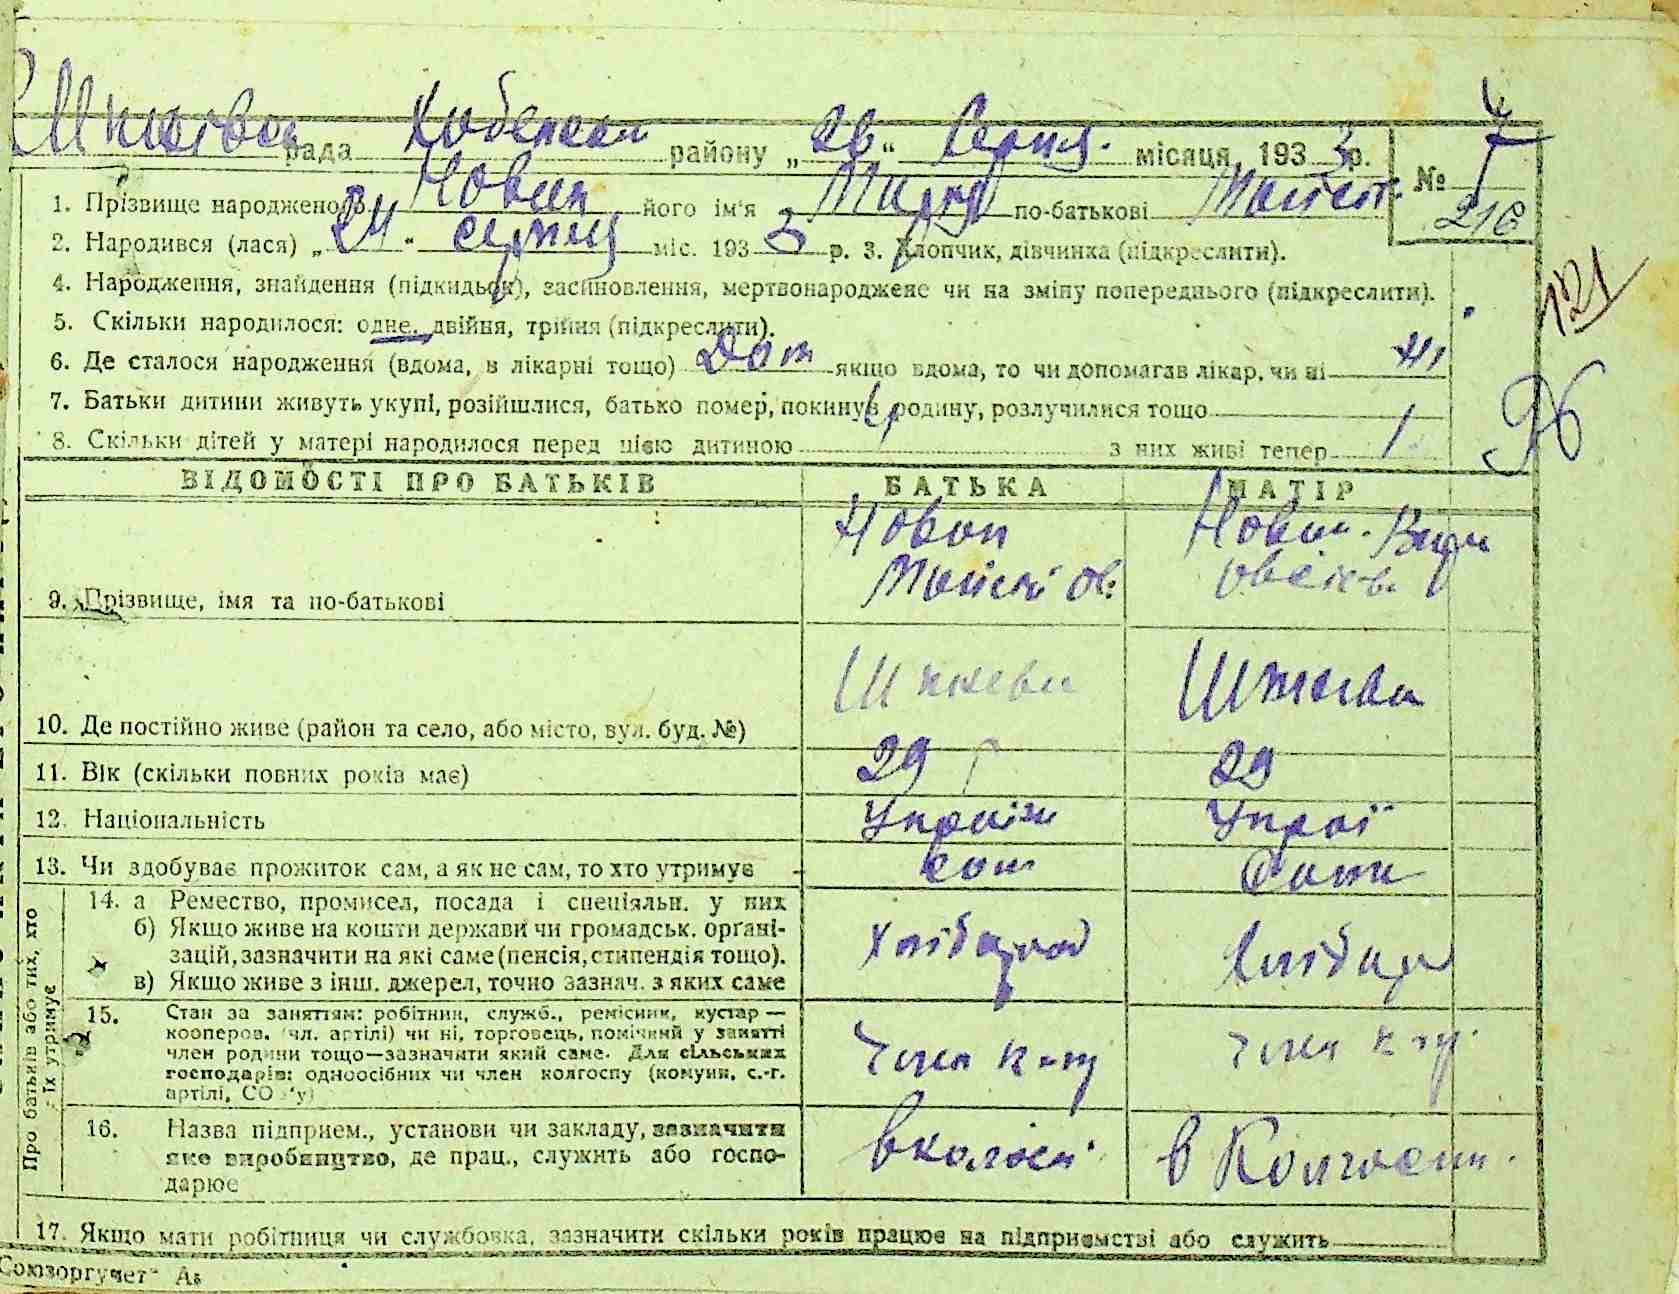 рада району „26“ Серпня місяця 1933 р. № 7
1. Прізвище народженого Новик його ім'я по-батькові
216
2. Народився (лася) „24“ серпня міс. 1933 р. 3. Хлопчик, дівчинка (підкреслити).
4. Народження, знайдення (підкидьок), засиновлення, мертвонароджене чи на зміну попереднього (підкреслити).
121
5. Скільки народилося: одне, двійня, трійня (підкреслити).
6. Де сталося народження (вдома, в лікарні тощо) Дом якщо вдома, то чи допомагав лікар, чи ні ні
7. Батьки дитини живуть укупі, розійшлися, батько помер, покинув родину, розлучилися тощо
8. Скільки дітей у матері народилося перед цією дитиною з них живі тепер 1
ВІДОМОСТІ ПРО БАТЬКІВ БАТЬКА МАТІР
Новик Новик
9. Прізвище, імя та по-батькові
10. Де постійно живе (район та село, або місто, вул. буд. №)
11. Вік (скільки повних років має) 29 29
12. Національність Україн Украї
13. Чи здобуває прожиток сам, а як не сам, то хто утримує сам сама
Про батьків або тих, хто їх утримує
14. а Ремество, промисел, посада і спеціяльн. у них
б) Якщо живе на кошти держави чи громадськ. органі-
зацій, зазначити на які саме (пенсія, стипендія тощо).
в) Якщо живе з інш. джерел, точно зазнач. з яких саме
Хлібороб Хлібор
15. Стан за заняттям: робітник, служб., ремісник, кустар —
кооперов. (чл. артілі) чи ні, торговець, помічний у занятті
член родини тощо—зазначити який саме. Для сільських
господарів: одноосібних чи член колгоспу (комуни, с.-г.
артілі, СО у)
Член к-пу Член к-пу
16. Назва підприєм., установи чи закладу, зазначити
яке виробництво, де прац., служить або госпо-
дарює
в колгосп в Колгоспи
17. Якщо мати робітниця чи службовка, зазначити скільки років працює на підприємстві або служить
Союзоргучет